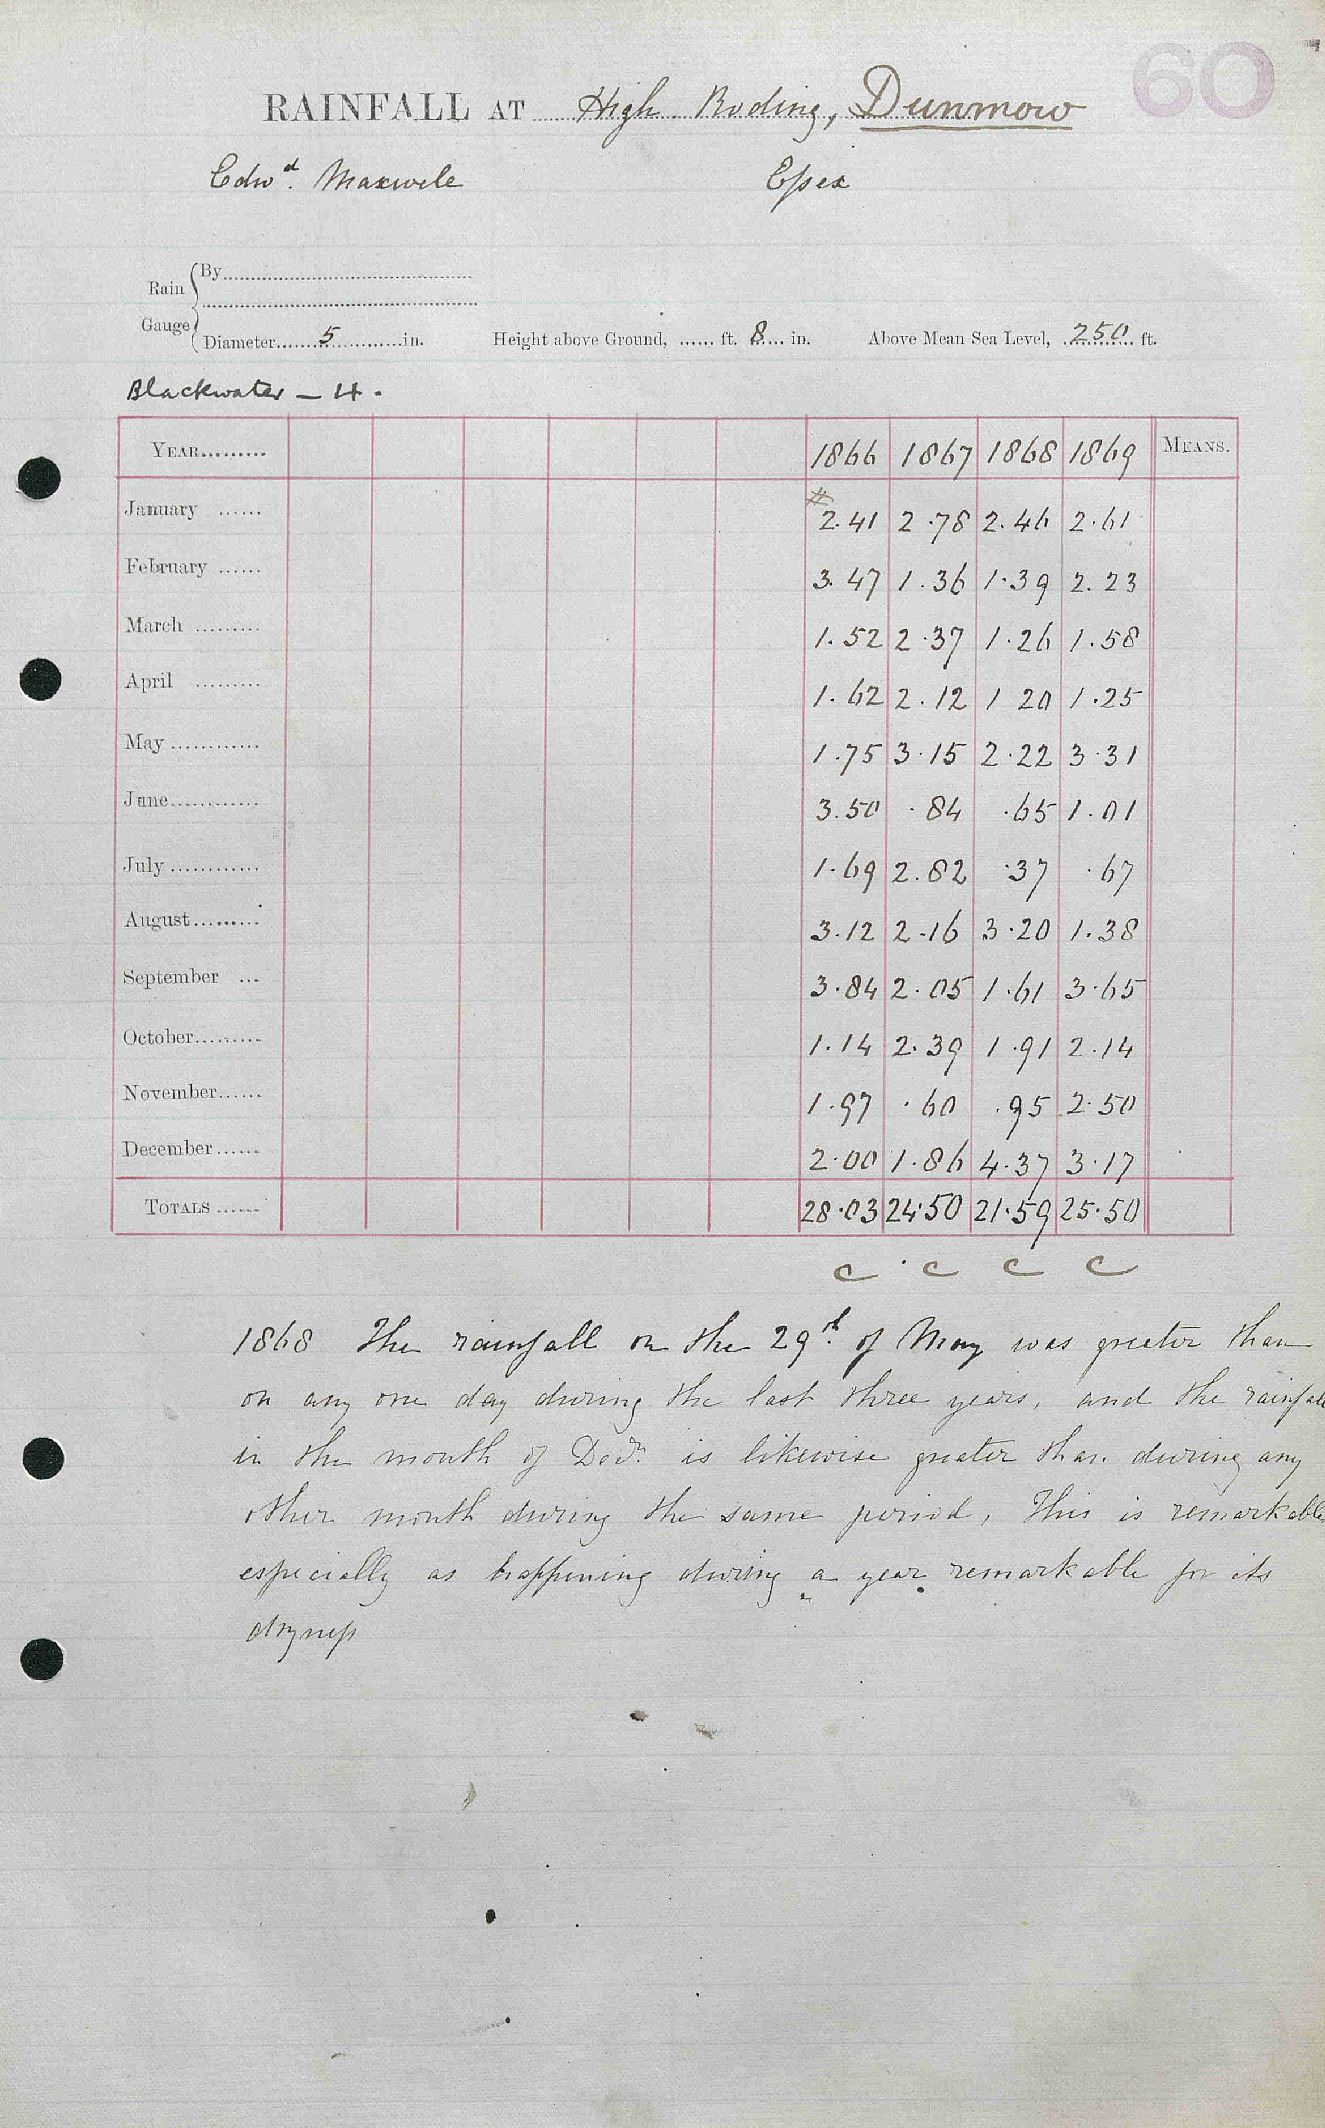 60
RAINFALL AT High Roding, Dunmow
Edwd. Maxwell Essex
Rain Gauge { By
Diameter 5 in. Height above Ground, ft. 8 in. Above Mean Sea Level, 250 ft.
Blackwater – 4.
YEAR 1866 1867 1868 1869 MEANS.
January # 2.41 2.78 2.46 2.61
February 3.47 1.36 1.39 2.23
March 1.52 2.37 1.26 1.58
April 1.62 2.12 1 20 1.25
May 1.75 3.15 2.22 3.31
June 3.50 .84 .65 1.01
July 1.69 2.82 .37 .67
August 3.12 2.16 3.20 1.38
September 3.84 2.05 1.61 3.65
October 1.14 2.39 1.91 2.14
November 1.97 .60 .95 2.50
December 2.00 1.86 4.37 3.17
TOTALS 28.03 24.50 21.59 25.50
c c c c
1868 The rainfall on the 29th. of May was greater than
on any one day during the last three years, and the rainfall
in the month of Decr. is likewise greater than during any
other month during the same period, This is remarkable
especially as happening during a year remarkable for its
dryness